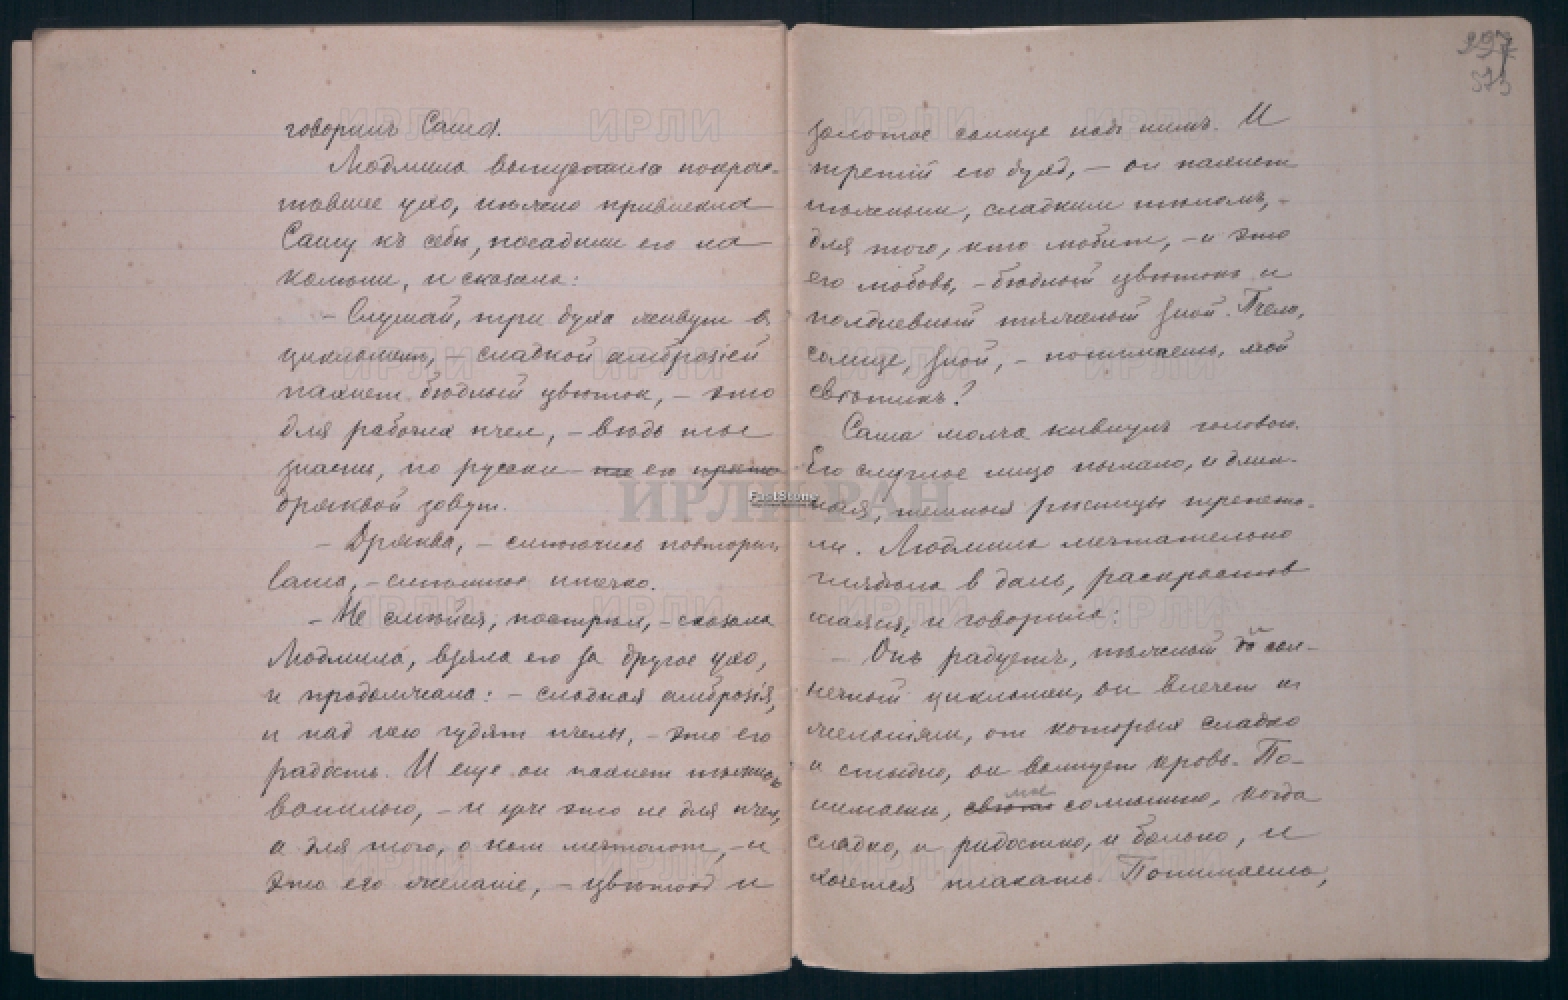 говорилъ Саша.
Людмила выпустила покрас-
нѣвшее ухо, нѣжно привлекла
Сашу къ себѣ, посадила его на
колѣни, и сказала:
– Слушай, три духа живут в
цикламенѣ, – сладкой амброзіей
пахнет бѣдный цвѣток, – это
для рабочих пчел, – вѣдь ты
знаешь, по русски его
дряквой зовут.
– Дряква, – смѣючись повторил
Саша, – смѣшное имечко.
– Не смѣйся, пострѣл, – сказала
Людмила, взяла его за другое ухо,
и продолжала: – сладкая амброзія,
и над нею гудят пчелы, – это его
радость. И еще он пахнет нѣжною
ванилью, – и уже это не для пчел,
а для того, о ком мечтают, – и
это его желаніе, – цвѣток и
297
золотое солнце надъ нимъ. И
третій его дух, – он пахнет
нѣжным, сладким тѣломъ, –
для того, кто любит, – и это
его любовь, – бѣдный цвѣтокъ и
полдневный тяжелый зной. Пчела,
солнце, зной, – понимаешь, мой
свѣтикъ?
Саша молча кивнулъ головою.
Его смуглое лицо пылало, и длин-
ныя, темныя рѣсницы трепета-
ли. Людмила мечтательно
глядѣла в даль, раскраснѣв
шаяся, и говорила:
– Онъ радуетъ, нѣжный и сол-
нечный цикламен, он влечет к
желаніям, от которых сладко
и стыдно, он волнует кровь. По-
нимаешь, мое солнышко, когда
сладко, и радостно, и больно, и
хочется плакать. Понимаешь,
ИРЛИ РАН
FastStone